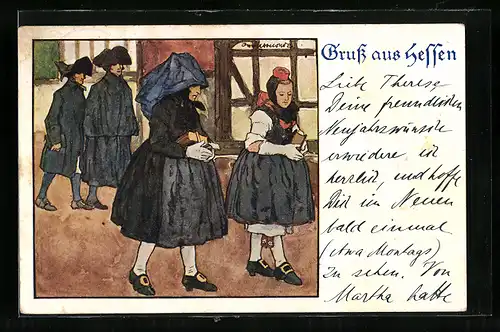 Gruß aus Hessen
Liebe Therese
Deine freundlichen
Neujahrswünsche
erwidere ich
herzlich, und hoffe
Dich im Neuen
bald einmal
(etwa Montags)
zu sehen. Von
Martha hatte